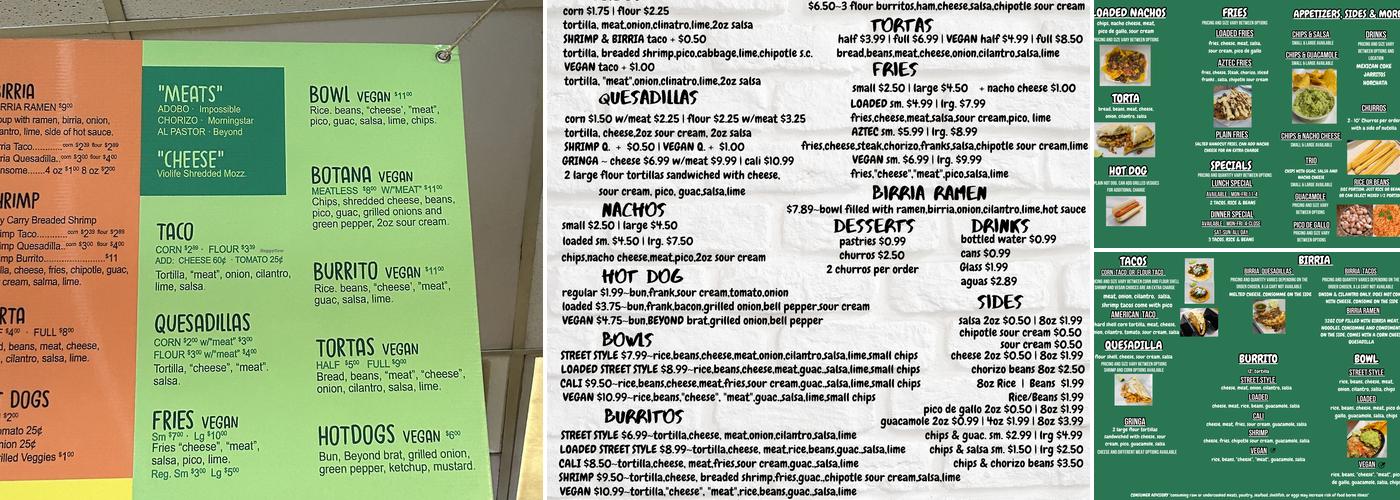 BIRRIA
BIRRIA RAMEN $9⁰⁰
soup with ramen, birria, onion,
cilantro, lime, side of hot sauce.
HRIMP
y Carry Breaded Shrimp
RTA
FULL $8⁰⁰
, cilantro, salsa, lime.
DOGS
$2⁰⁰
omato 25¢
nion 25¢
rilled Veggies $1⁰⁰
"MEATS"
ADOBO · Impossible
CHORIZO · Morningstar
AL PASTOR · Beyond
"CHEESE"
Violife Shredded Mozz.
TACO
CORN $2⁵⁹ · FLOUR $3³⁹
ADD: CHEESE 60¢ · TOMATO 25¢
Tortilla, "meat", onion, cilantro,
lime, salsa.
QUESADILLAS
CORN $2⁰⁰ w/"meat" $3⁰⁰
FLOUR $3⁰⁰ w/"meat" $4⁰⁰
Tortilla, "cheese", "meat",
salsa.
FRIES VEGAN
Sm $7⁰⁰ · Lg $10⁰⁰
Fries "cheese", "meat",
salsa, pico, lime.
Reg. Sm $3⁰⁰ Lg $5⁰⁰
BOWL VEGAN $11⁰⁰
Rice. beans, "cheese', "meat",
pico, guac, salsa, lime, chips.
BOTANA VEGAN
MEATLESS $8⁰⁰ W/"MEAT" $11⁰⁰
Chips, shredded cheese, beans,
pico, guac, grilled onions and
green pepper, 2oz sour cream.
BURRITO VEGAN $11⁰⁰
Rice. beans, "cheese', "meat",
guac, salsa, lime.
TORTAS VEGAN
HALF $5⁰⁰ FULL $9⁰⁰
Bread, beans, "meat", "cheese",
onion, cilantro, salsa, lime.
HOTDOGS VEGAN $6⁰⁰
Bun, Beyond brat, grilled onion,
green pepper, ketchup, mustard.
corn $1.75 | flour $2.25
tortilla, meat,onion,clinatro,lime,2oz salsa
SHRIMP & BIRRIA taco + $0.50
tortilla, breaded shrimp,pico,cabbage,lime,chipotle s.c.
VEGAN taco + $1.00
tortilla, "meat",onion,clinatro,lime,2oz salsa
QUESADILLAS
corn $1.50 w/meat $2.25 | flour $2.25 w/meat $3.25
tortilla, cheese,2oz sour cream, 2oz salsa
SHRIMP Q. + $0.50 | VEGAN Q. + $1.00
GRINGA ~ cheese $6.99 w/meat $9.99 | cali $10.99
2 large flour tortillas sandwiched with cheese,
sour cream, pico, guac,salsa,lime
NACHOS
small $2.50 | large $4.50
loaded sm. $4.50 | lrg. $7.50
chips,nacho cheese,meat,pico,2oz sour cream
HOT DOG
regular $1.99~bun,frank,sour cream,tomato,onion
loaded $3.75~bun,frank,bacon,grilled onion,bell pepper,sour cream
VEGAN $4.75~bun,BEYOND brat,grilled onion,bell pepper
BOWLS
STREET STYLE $7.99~rice,beans,cheese,meat,onion,cilantro,salsa,lime,small chips
LOADED STREET STYLE $8.99~rice,beans,cheese,meat,guac.,salsa,lime, chips
CALI $9.50~rice,beans,cheese,meat,fries,sour cream,guac.,salsa,lime,small chips
VEGAN $10.99~rice,beans,"cheese", "meat",guac.,salsa,lime,small chips
BURRITOS
STREET STYLE $6.99~tortilla,cheese, meat,onion,cilantro,salsa,lime
LOADED STREET STYLE $8.99~tortilla,cheese, meat,rice,beans,guac.,salsa,lime
CALI $8.50~tortilla,cheese, meat,fries,sour cream,guac.,salsa,lime
SHRIMP $9.50~tortilla,cheese, breaded shrimp,fries,guac.,chipotle sour cream,salsa,lime
VEGAN $10.99~tortilla,"cheese", "meat",rice,beans,guac.,salsa,lime
$6.50~3 flour burritos,ham,cheese,salsa,chipotle sour cream
TORTAS
half $3.99 | full $6.99 | VEGAN half $4.99 | full $8.50
bread,beans,meat,cheese,onion,cilantro,salsa,lime
FRIES
small $2.50 | large $4.50 + nacho cheese $1.00
LOADED sm. $4.99 | lrg. $7.99
fries,cheese,meat,salsa,sour cream,pico, lime
AZTEC sm. $5.99 | lrg. $8.99
fries,cheese,steak,chorizo,franks,salsa,chipotle sour cream,lime
VEGAN sm. $6.99 | lrg. $9.99
fries,"cheese","meat",pico,salsa,lime
BIRRIA RAMEN
$7.89~bowl filled with ramen,birria,onion,cilantro,lime,hot sauce
DESSERTS
pastries $0.99
churros $2.50
2 churros per order
DRINKS
bottled water $0.99
cans $0.99
Glass $1.99
aguas $2.89
SIDES
salsa 2oz $0.50 | 8oz $1.99
chipotle sour cream $0.50
sour cream $0.50
cheese 2oz $0.50 | 8oz $1.99
chorizo beans 8oz $2.50
8oz Rice | Beans $1.99
Rice/Beans $1.99
pico de gallo 2oz $0.50 | 8oz $1.99
guacamole 2oz $0.99 | 4oz $1.99 | 8oz $3.99
chips & guac. sm. $2.99 | lrg $4.99
chips & salsa sm. $1.50 | lrg $2.50
chips & chorizo beans $3.50
LOADED NACHOS
chips, nacho cheese, meat,
pico de gallo, sour cream
TORTA
bread, beans, meat, cheese,
onion, cilantro, salsa
HOT DOG
PLAIN HOT DOG, CAN ADD GRILLED VEGGIES
FOR ADDITIONAL CHARGE
FRIES
PRICING AND SIZE VARY BETWEEN OPTIONS
LOADED FRIES
fries, cheese, meat, salsa,
sour cream, pico de gallo
AZTEC FRIES
fries, cheese, steak, chorizo, sliced
franks, salsa, chipotle sour cream
PLAIN FRIES
SALTED HANDCUT FRIES, CAN ADD NACHO
CHEESE FOR AN EXTRA CHARGE
SPECIALS
PRICING AND QUANTITY VARY BETWEEN OPTIONS
LUNCH SPECIAL
AVAILABLE : MON-FRI 11-4
2 TACOS, RICE & BEANS
DINNER SPECIAL
AVAILABLE : MON-FRI 4-CLOSE
SAT-SUN ALL DAY
3 TACOS, RICE & BEANS
APPETIZERS, SIDES & MORE
CHIPS & SALSA
SMALL & LARGE AVAILABLE
CHIPS & GUACAMOLE
SMALL & LARGE AVAILABLE
CHIPS & NACHO CHEESE
SMALL & LARGE AVAILABLE
TRIO
CHIPS WITH GUAC, SALSA AND
NACHO CHEESE
GUACAMOLE
PICO DE GALLO
DRINKS
MEXICAN COKE
JARRITOS
HORCHATA
CHURROS
2 - 10" Churros per order
with a side of nutella
RICE OR BEANS
TACOS
CORN TACO OR FLOUR TACO
meat, onion, cilantro, salsa,
shrimp tacos come with pico
AMERICAN TACO
hard shell corn tortilla, meat, cheese,
QUESADILLA
flour shell, cheese, sour cream, salsa
GRINGA
2 large flour tortillas
sandwiched with cheese,
sour cream, guacamole, salsa
CHEESE AND DIFFERENT MEAT OPTIONS AVAILABLE
BIRRIA
BIRRIA QUESADILLAS
MELTED CHEESE, CONSOMME ON THE SIDE
BIRRIA TACOS
BIRRIA RAMEN
BURRITO
12" tortilla
STREET STYLE
cheese, meat, onion, cilantro, salsa
LOADED
cheese, meat, rice, beans, guacamole, salsa
CALI
cheese, meat, fries, sour cream, guacamole, salsa
SHRIMP
cheese, fries, chipotle sour cream, guacamole, salsa
VEGAN
rice, beans, "cheese", "meat", guacamole, salsa
BOWL
STREET STYLE
rice, beans, cheese, meat,
onion, cilantro, salsa, chips
LOADED
rice, beans, cheese, meat, pico
de gallo, guacamole, salsa, chips
VEGAN
rice, beans, "cheese", "meat", pico
de gallo, guacamole, salsa, chips
CONSUMER ADVISORY "consuming raw or undercooked meats, poultry, seafood, shellfish, or eggs may increase risk of food borne illness"